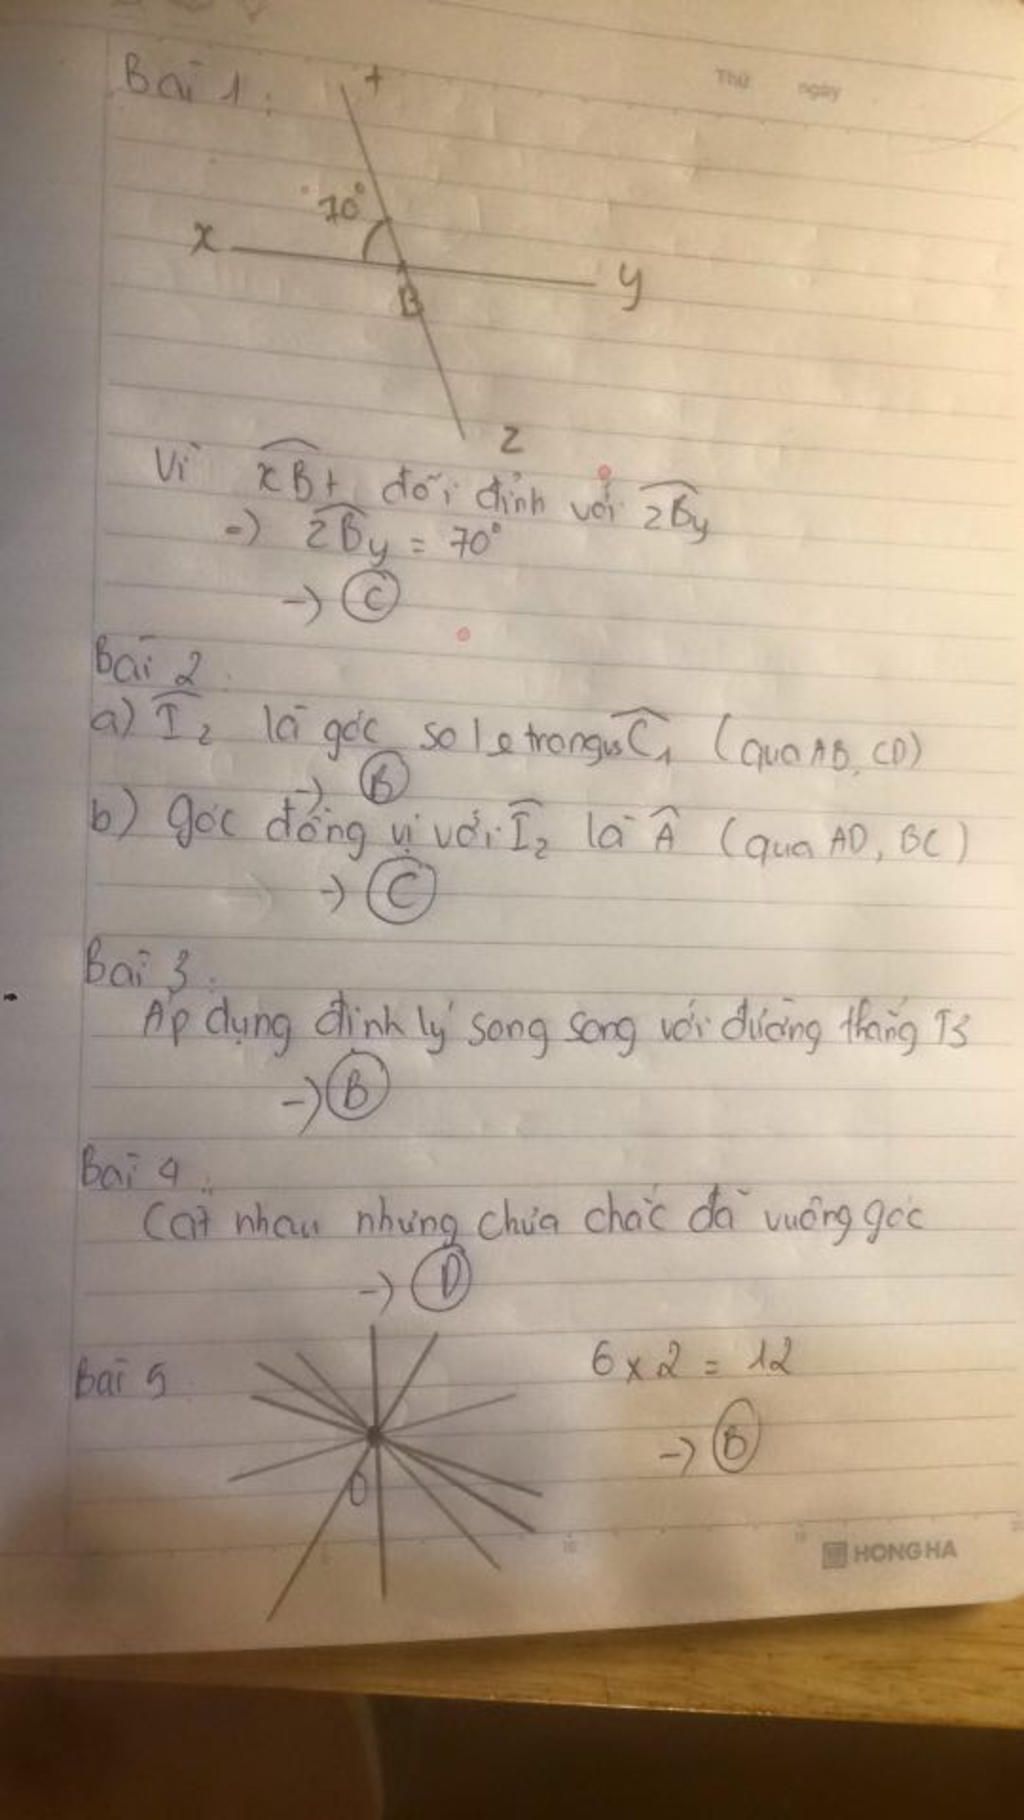 Bài 1:
Thứ ngày
t
70°
x
y
B
z
Vì xBt đối đỉnh với zBy
=) zBy = 70°
-) C
Bài 2
a) I₂ là góc so le trong vs C₁ (qua AB, CD)
-) B
b) góc đồng vị với I₂ là A (qua AD, BC)
-) C
Bài 3:
Áp dụng định lý song song với đường thẳng T3
-) B
Bài 4:
Cắt nhau nhưng chưa chắc đã vuông góc
-) D
Bài 5
6 x 2 = 12
-) B
O
HONG HA